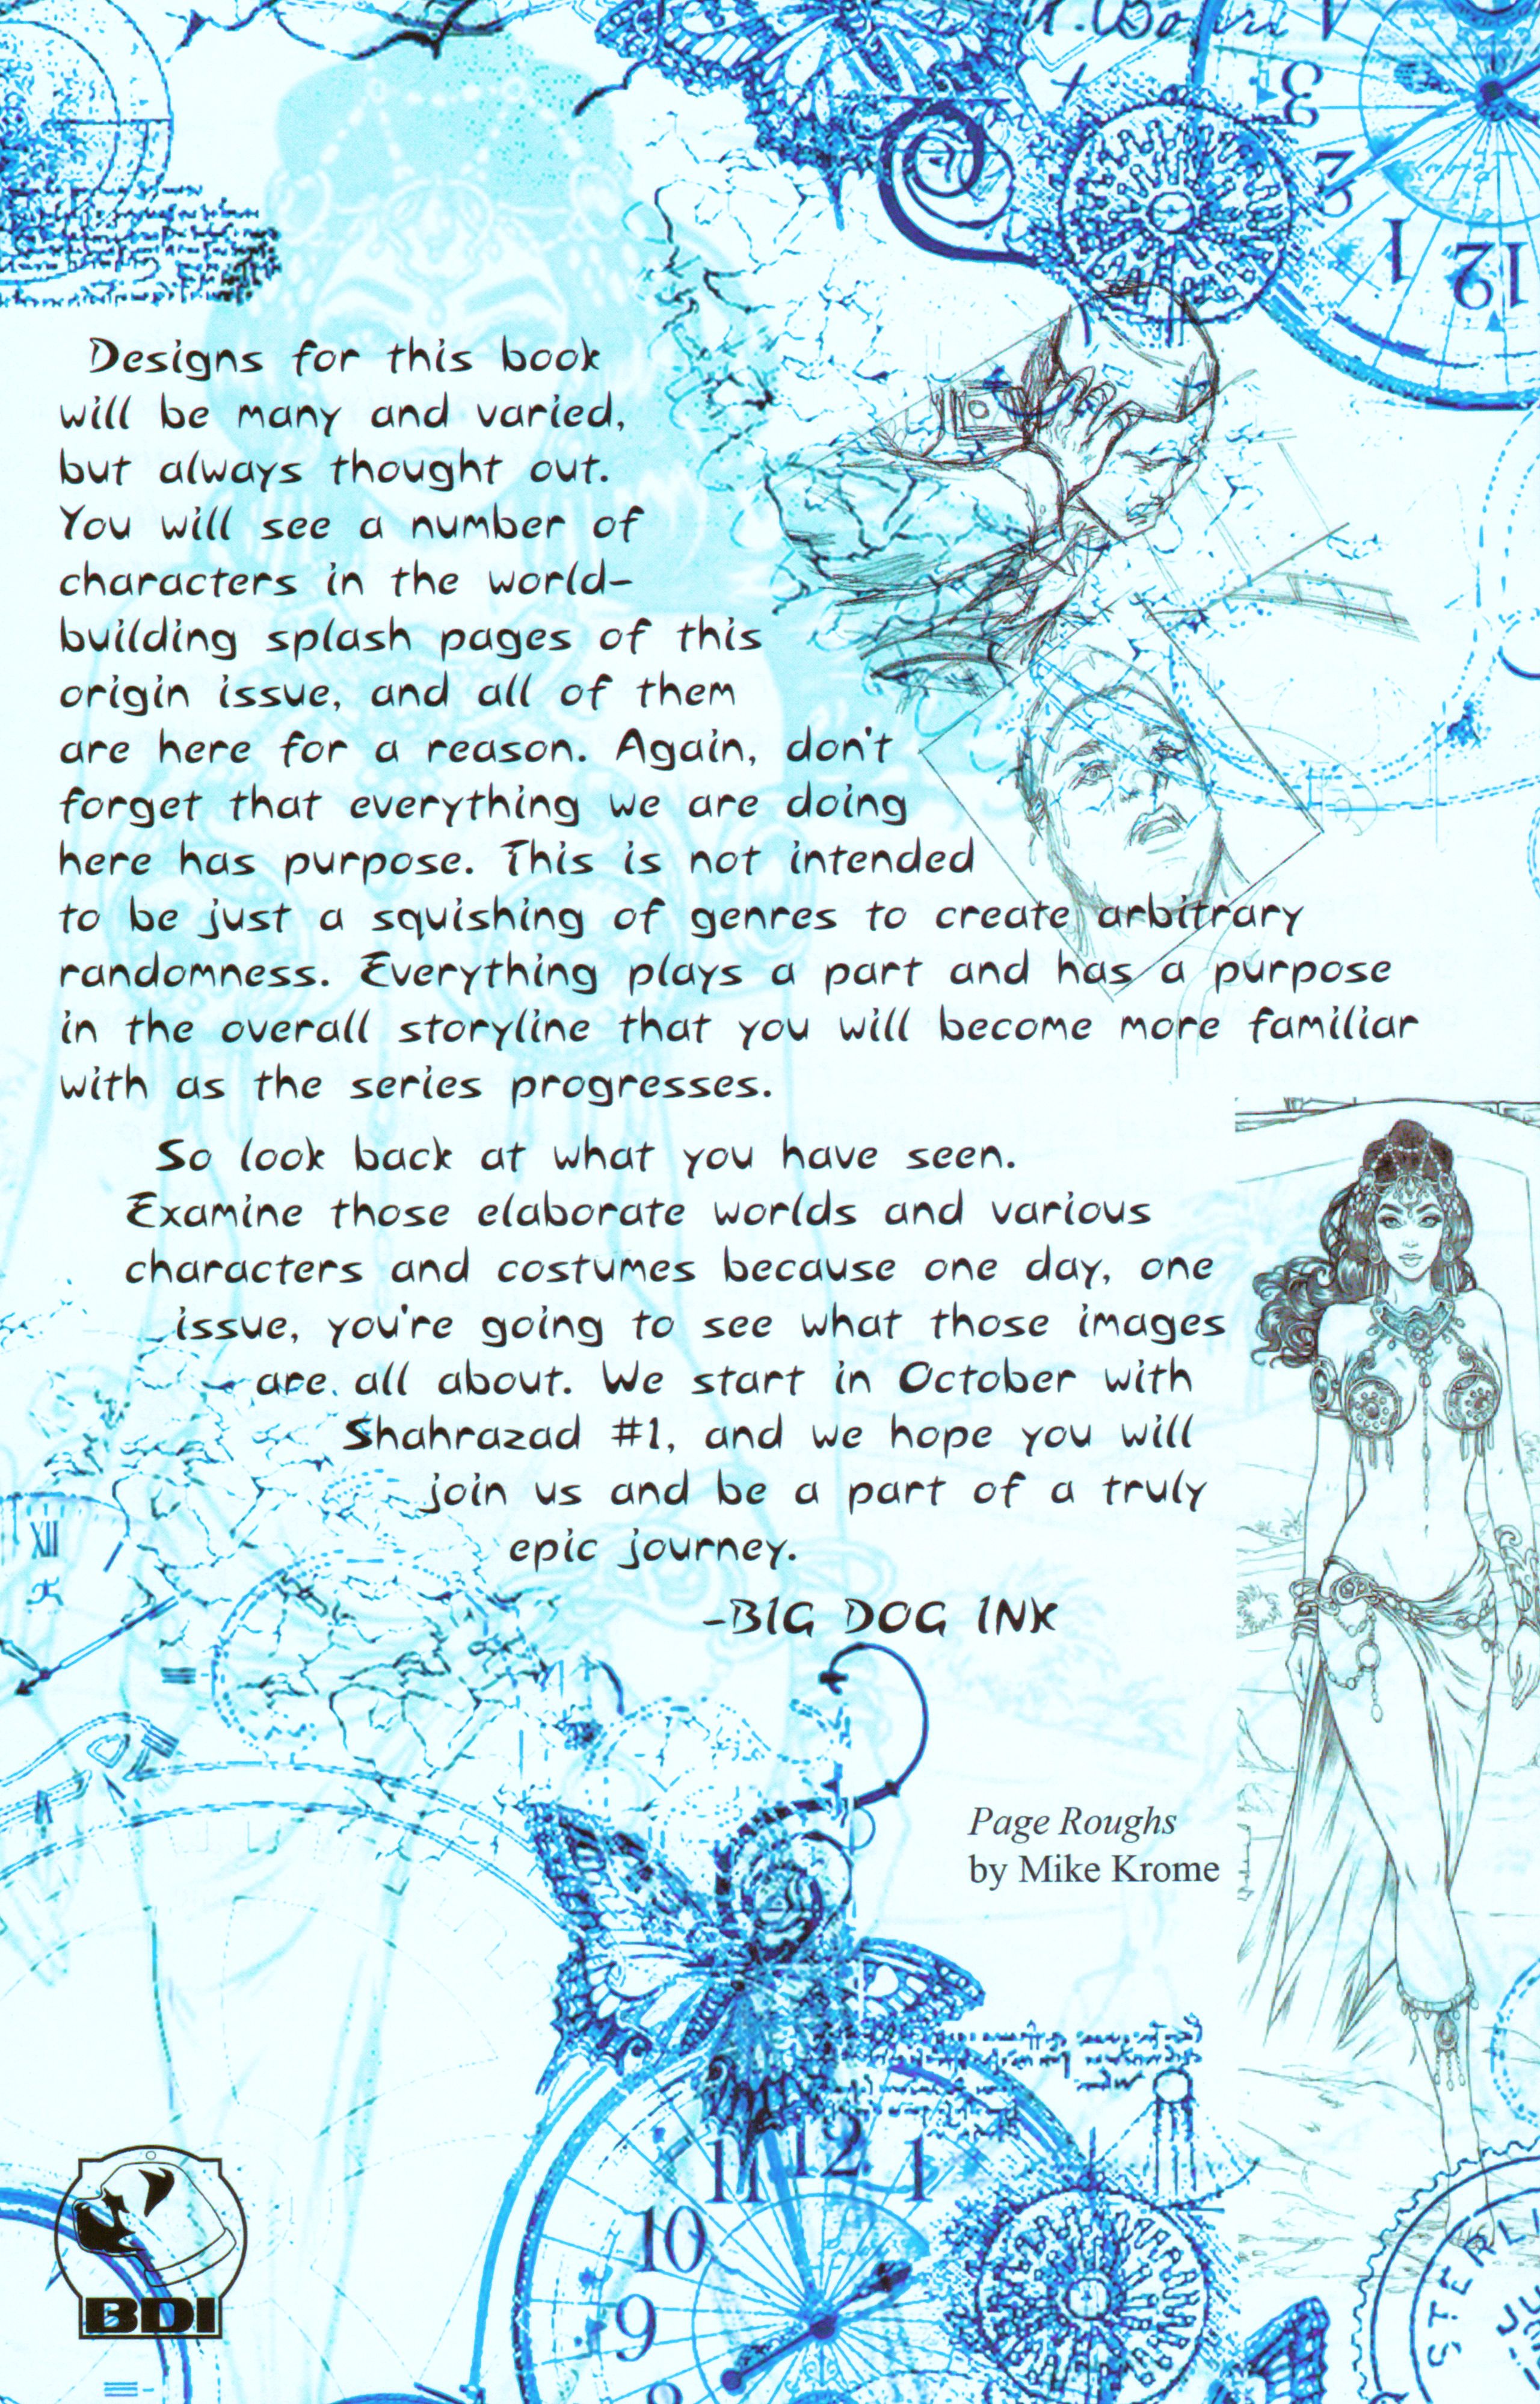 T. Bo
3
2
1
12
Designs for this book
will be many and varied,
but always thought out.
You will see a number of
characters in the world-
building splash pages of this
origin issue, and all of them
are here for a reason. Again, don't
forget that everything we are doing
here has purpose. This is not intended
to be just a squishing of genres to create arbitrary
randomness. Everything plays a part and has a purpose
in the overall storyline that you will become more familiar
with as the series progresses.
So look back at what you have seen.
Examine those elaborate worlds and various
characters and costumes because one day, one
issue, you're going to see what those images
are all about. We start in October with
Shahrazad #1, and we hope you will
join us and be a part of a truly
epic journey.
-BIG DOG INK
XII
Page Roughs
by Mike Krome
11 12 1
10
9
8
BDI
STERLI
JU